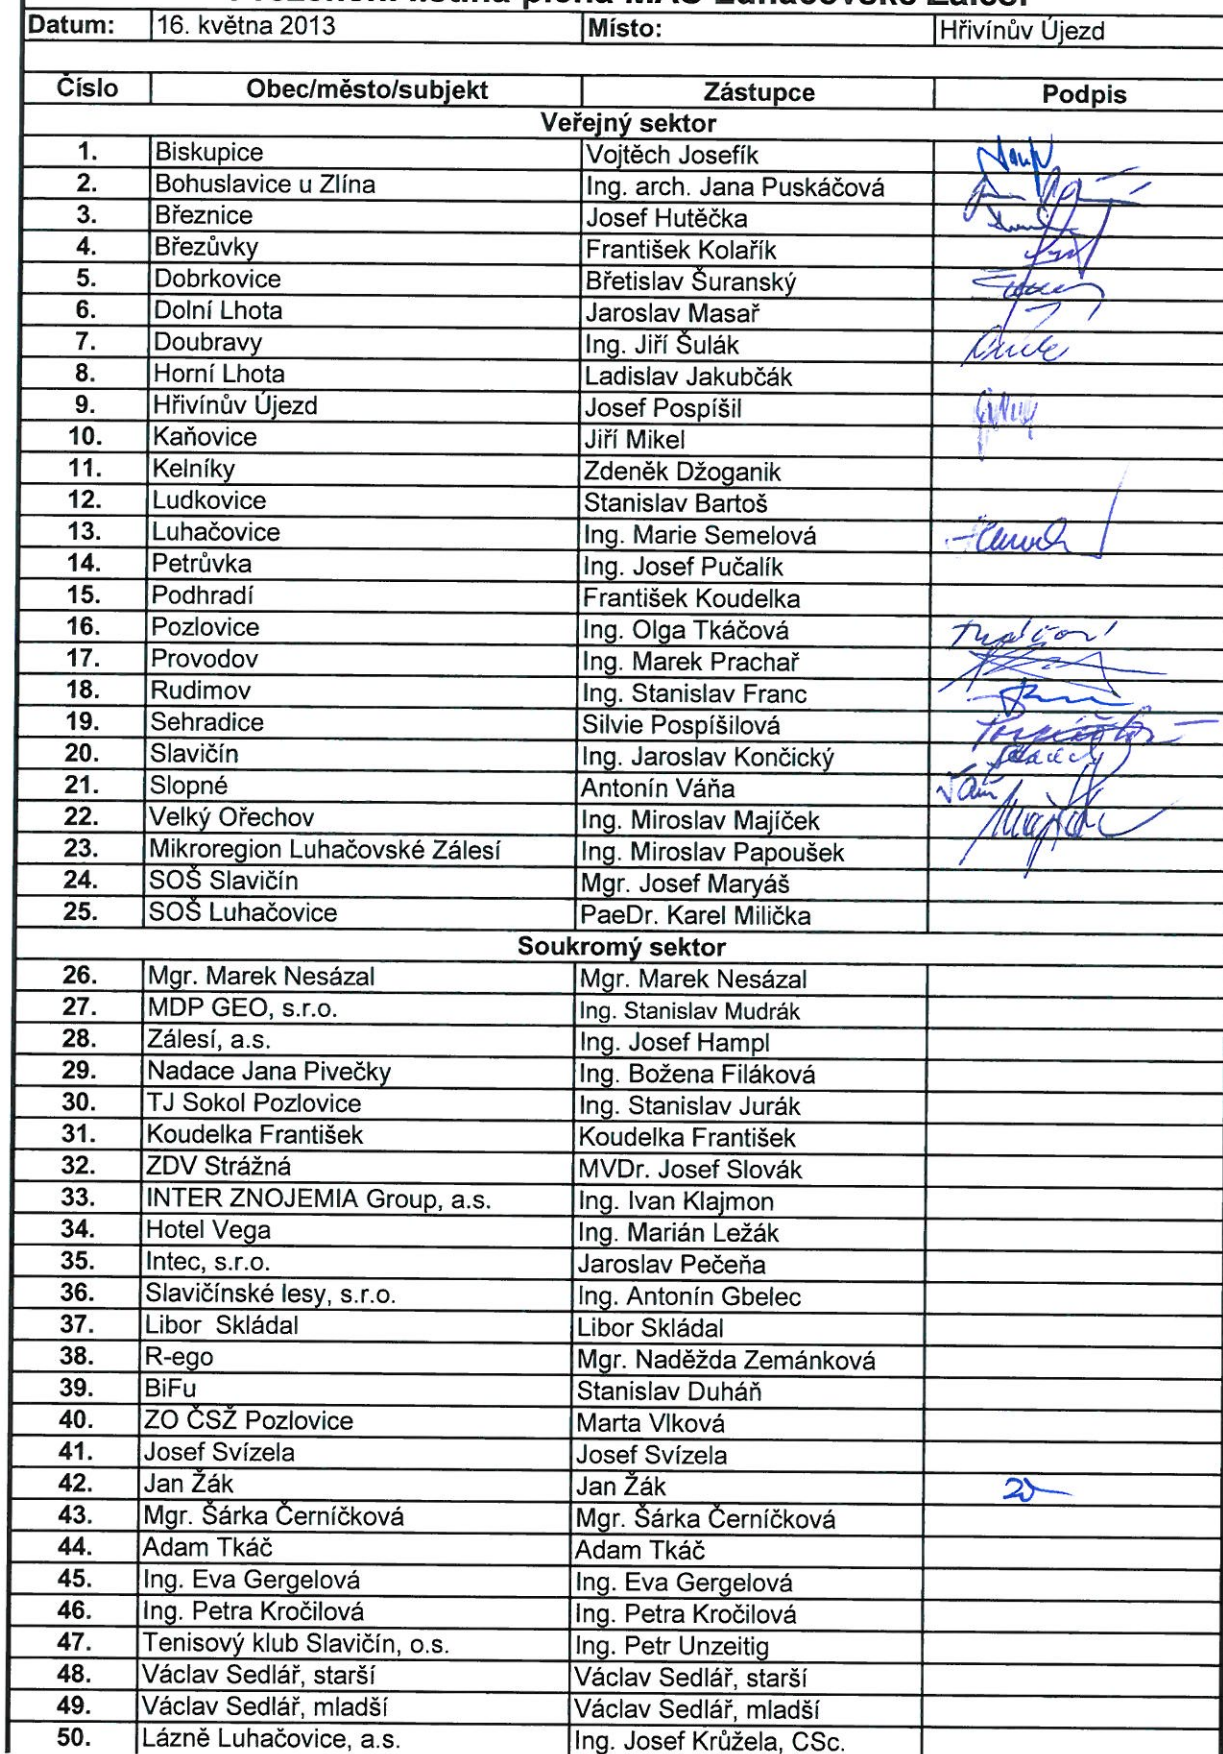 Datum: 16. května 2013 Místo: Hřivínův Újezd
Číslo Obec/město/subjekt Zástupce Podpis
Veřejný sektor
1. Biskupice Vojtěch Josefík
2. Bohuslavice u Zlína Ing. arch. Jana Puskáčová
3. Březnice Josef Hutěčka
4. Březůvky František Kolařík
5. Dobrkovice Břetislav Šuranský
6. Dolní Lhota Jaroslav Masař
7. Doubravy Ing. Jiří Šulák
8. Horní Lhota Ladislav Jakubčák
9. Hřivínův Újezd Josef Pospíšil
10. Kaňovice Jiří Mikel
11. Kelníky Zdeněk Džoganik
12. Ludkovice Stanislav Bartoš
13. Luhačovice Ing. Marie Semelová
14. Petrůvka Ing. Josef Pučalík
15. Podhradí František Koudelka
16. Pozlovice Ing. Olga Tkáčová
17. Provodov Ing. Marek Prachař
18. Rudimov Ing. Stanislav Franc
19. Sehradice Silvie Pospíšilová
20. Slavičín Ing. Jaroslav Končický
21. Slopné Antonín Váňa
22. Velký Ořechov Ing. Miroslav Majíček
23. Mikroregion Luhačovské Zálesí Ing. Miroslav Papoušek
24. SOŠ Slavičín Mgr. Josef Maryáš
25. SOŠ Luhačovice PaeDr. Karel Milička
Soukromý sektor
26. Mgr. Marek Nesázal Mgr. Marek Nesázal
27. MDP GEO, s.r.o. Ing. Stanislav Mudrák
28. Zálesí, a.s. Ing. Josef Hampl
29. Nadace Jana Pivečky Ing. Božena Filáková
30. TJ Sokol Pozlovice Ing. Stanislav Jurák
31. Koudelka František Koudelka František
32. ZDV Strážná MVDr. Josef Slovák
33. INTER ZNOJEMIA Group, a.s. Ing. Ivan Klajmon
34. Hotel Vega Ing. Marián Ležák
35. Intec, s.r.o. Jaroslav Pečeňa
36. Slavičínské lesy, s.r.o. Ing. Antonín Gbelec
37. Libor Skládal Libor Skládal
38. R-ego Mgr. Naděžda Zemánková
39. BiFu Stanislav Duháň
40. ZO ČSŽ Pozlovice Marta Vlková
41. Josef Svízela Josef Svízela
42. Jan Žák Jan Žák
43. Mgr. Šárka Černíčková Mgr. Šárka Černíčková
44. Adam Tkáč Adam Tkáč
45. Ing. Eva Gergelová Ing. Eva Gergelová
46. Ing. Petra Kročilová Ing. Petra Kročilová
47. Tenisový klub Slavičín, o.s. Ing. Petr Unzeitig
48. Václav Sedlář, starší Václav Sedlář, starší
49. Václav Sedlář, mladší Václav Sedlář, mladší
50. Lázně Luhačovice, a.s. Ing. Josef Krůžela, CSc.